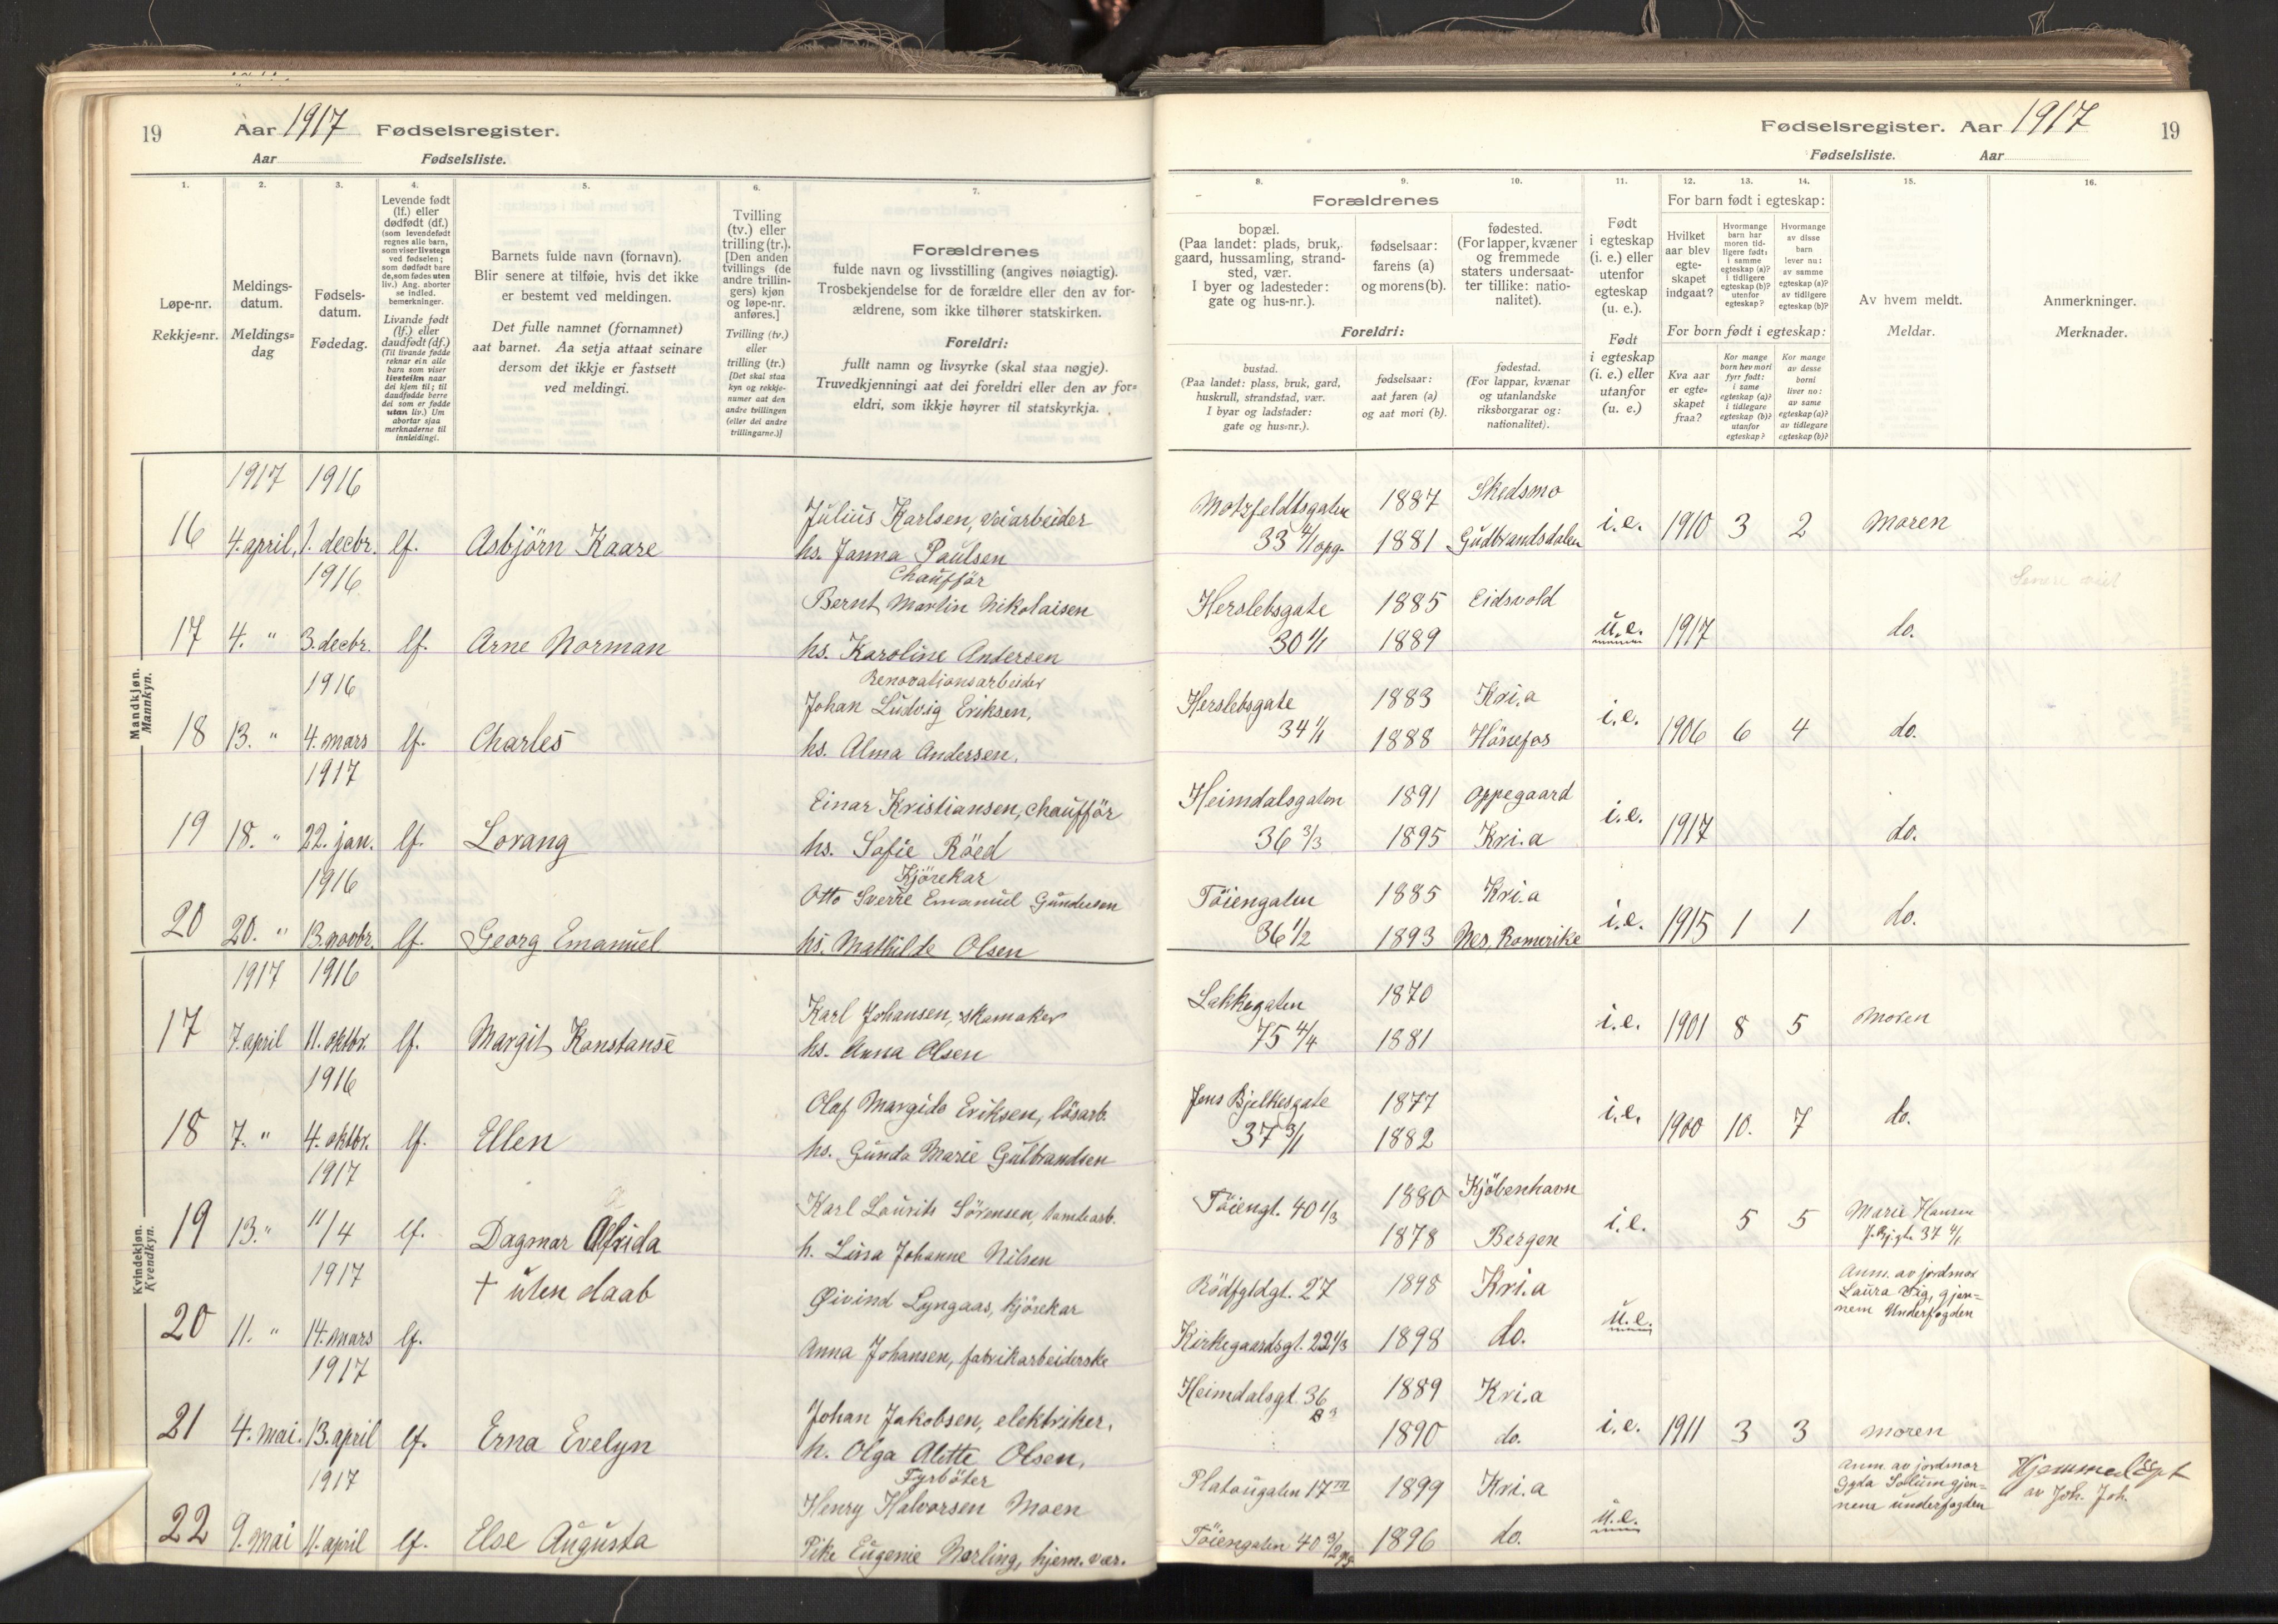 19 Aar 1917 Fødselsregister.
Aar Fødselsliste.
1.
2.
3.
4.
5.
6.
7.
Løpe-nr.
Rekkje=nr.
Meldings-
datum.
Meldings=
dag
Fødsels-
datum.
Fødedag.
Levende født
(lf.) eller
dødfødt (df.)
(som levendefødt
regnes alle barn,
som viser livstegn
ved fødselen;
som dødfødt bare
de, som fødes uten
liv.) Ang. aborter
se indled.
bemerkninger.
Livande født
(lf.) eller
daudfødt (df.)
(Til livande fødde
reknar ein alle
barn som viser
livsteikn naar
dei kjem til; til
daudfødde berre
dei som er fødde
utan liv.) Um
abortar sjaa
merknaderne til
innleidingi.
Barnets fulde navn (fornavn).
Blir senere at tilføie, hvis det ikke
er bestemt ved meldingen.
Det fulle namnet (fornamnet)
aat barnet. Aa setja attaat seinare
dersom det ikkje er fastsett
ved meldingi.
Tvilling
(tv.) eller
trilling (tr.).
[Den anden
tvillings (de
andre trillin-
gers) kjøn
og løpe-nr.
anføres.]
Tvilling (tv.)
eller
trilling (tr.)
[Det skal staa
kyn og rekkje-
numer aat den
andre tvillingen
(eller dei andre
trillingarne.)]
Forældrenes
fulde navn og livsstilling (angives nøiagtig).
Trosbekjendelse for de forældre eller den av for-
ældrene, som ikke tilhører statskirken.
Foreldri:
fullt namn og livsyrke (skal staa nøgje).
Truvedkjenningi aat dei foreldri eller den av for=
eldri, som ikkje høyrer til statskyrkja.
Mandkjøn.
Mannkyn.
1917 1916
16 4. april, 1. decbr. lf. Asbjörn Kaare
Julius Karlsen, veiarbeider
hs. Janna Paulsen
1916
Chaufför
Bernt Martin Nikolaisen
17 4. " 3. decbr. lf. Arne Norman
hs. Karoline Andersen
1916
Renovationsarbeider
Johan Ludvig Eriksen,
18 13. " 4. mars lf. Charles
hs. Alma Andersen.
1917
Einar Kristiansen, chaufför
19 18. " 22. jan. lf. Lorang
hs. Sofie Röed
1916
Kjörekar
Otto Sverre Emanuel Gundersen
20 20. " 13. novbr. lf. Georg Emanuel
hs. Mathilde Olsen
Kvindekjøn.
Kvendkyn.
1917 1916
Karl Johansen, skomaker
17 7. april 11. oktbr. lf. Margit Konstanse
hs. Anna Olsen
1916
Olaf Margido Eriksen, lösarb.
18 7. " 4. oktbr. lf. Ellen
hs. Gunda Marie Gulbrandsen
1917
Karl Laurits Sörensen, tomtearb.
19 13. " 11/4 lf. Dagmar Alfrida
h. Lina Johanne Nilsen
1917
† uten daab
Øivind Lyngaas, kjörekar
20 11. " 14. mars lf.
Anna Johansen, fabrikarbeiderske
1917
Johan Jakobsen, elektriker.
21 4. mai. 13. april lf. Erna Evelyn
h. Olga Alette Olsen.
1917
Fyrböter
Henry Halvorsen Moen
22 9. mai 11. april lf. Else Augusta
Pike Eugenie Norling, hjem. vær.
Fødselsregister. Aar 1917 19
Fødselsliste. Aar
8.
9.
10.
11.
12.
13.
14.
15.
16.
Forældrenes
bopæl.
(Paa landet: plads, bruk,
gaard, hussamling, strand-
sted, vær.
I byer og ladesteder:
gate og hus-nr.).
fødselsaar:
farens (a)
og morens (b).
fødested.
(For lapper, kvæner
og fremmede
staters undersaat-
ter tillike: natio-
nalitet).
Foreldri:
bustad.
(Paa landet: plass, bruk, gard,
huskrull, strandstad, vær.
I byar og ladstader:
gate og hus=nr.).
fødselsaar:
aat faren (a)
og aat mori (b).
fødestad.
(For lappar, kvænar
og utanlandske
riksborgarar og:
nationalitet).
Født
i egteskap
(i. e.) eller
utenfor
egteskap
(u. e.).
Født
i egteskap
(i. e.) eller
utanfor
(u. e.)
For barn født i egteskap:
Hvilket
aar blev
egte-
skapet
indgaat?
Hvormange
barn har
moren tid-
ligere født:
i samme
egteskap (a)?
i tidligere
egteskap (b)?
utenfor
egteskap?
Hvormange
av disse
barn
lever nu:
av samme
egteskap (a)?
av tidligere
egteskap (b)?
For born født i egteskap:
Kva aar
er egte=
skapet
fraa?
Kor mange
born hev mori
fyrr født:
i same
egteskap (a)?
i tidlegare
egteskap (b)?
utanfor
egteskap?
Kor mange
av desse
borni
liver no:
av same
egteskap (a)?
av tidlegare
egteskap (b)?
Av hvem meldt.
Meldar.
Anmerkninger.
Merknader.
Motzfeldtsgaten 1887 Skedsmo
33 4/1 opg. 1881 Gudbrandsdalen i.e. 1910 3 2 Moren
Herslebsgate 1885 Eidsvold
30 1/1 1889 u.e. 1917 do.
Herslebsgate 1883 Kri.a
34 1/1 1888 Hönefos i.e. 1906 6 4 do.
Heimdalsgaten 1891 Oppegaard
36 3/3 1895 Kri.a i.e. 1917 do.
Töiengaten 1885 Kri.a
36 1/2 1893 Nes, Romerike i.e. 1915 1 1 do.
Lakkegaten 1870
75 4/4 1881 i.e. 1901 8 5 Moren
Jens Bjelkesgate 1877
37 3/1 1882 i.e. 1900 10. 7 do.
Töiengt. 40 1/3 1880 Kjöbenhavn
1878 Bergen i.e. 5 5 Marie Hansen
J. Bj.gt. 37 4/1
Rödfyldgt. 27 1898 Kri.a
Anm. av jordmor
Laura Vig, gjen=
nem Underfogden
Kirkegaardsgt. 22 1/3 1898 do. u.e.
Heimdalsgt. 36 1889 Kri.a
B 3
1890 do. i.e. 1911 3 3 Moren
Platougaten 17 III 1899 Kri.a
Anm. av jordmor
Gyda Solumgjen=
nem underfogden
Hjemmedöpt
av Joh. Joh.
Töiengaten 40 3/2 opg. 1896 do. u.e.